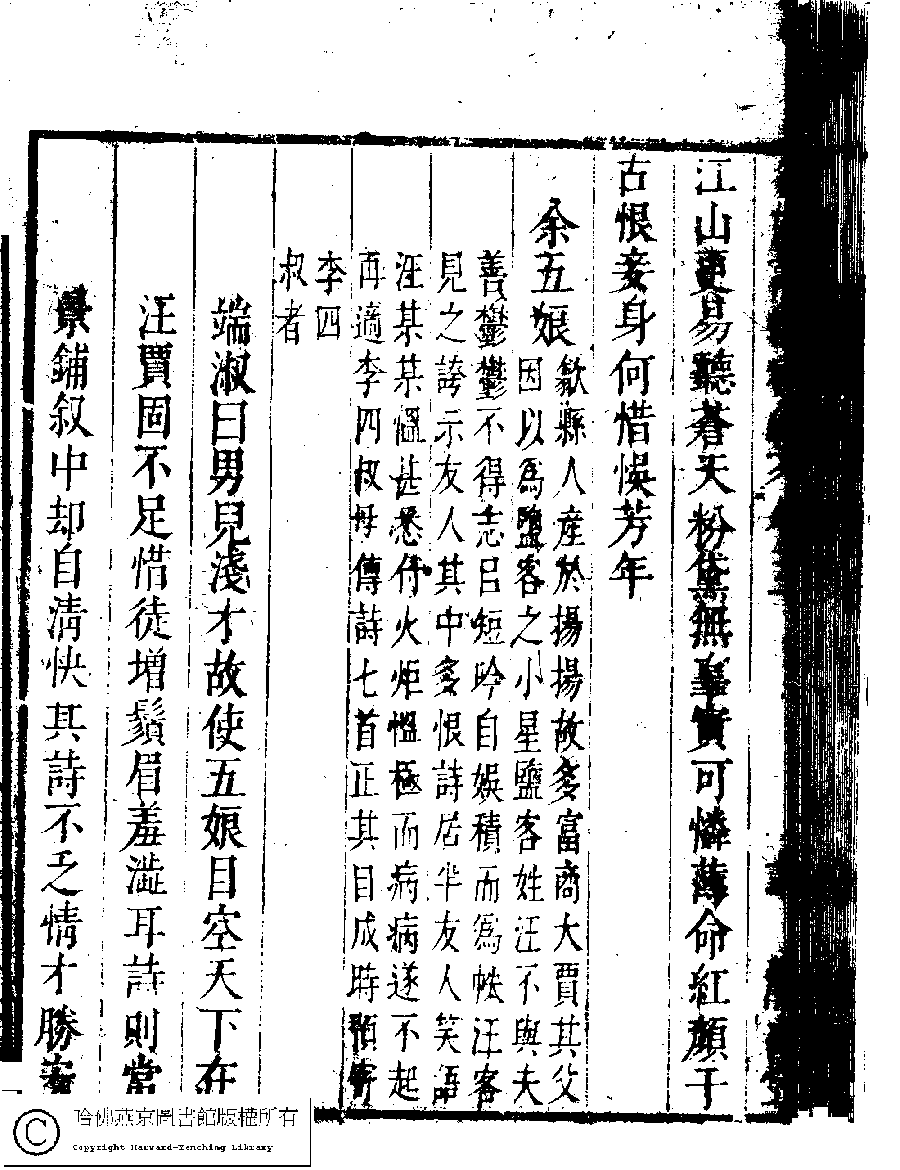 江山更易聽蒼天粉黛無辜實可憐薄命紅顏千
古恨妾身何惜悞芳年
余五娘
歙縣人產於揚揚故多富商大賈其父
因以為鹽客之小星鹽客姓汪不與夫
善鬱鬱不得志吕短吟自娛積而為帙汪客
見之誇示友人其中多恨詩居半友人笑語
汪某某慍甚悉付火炬慍極而病病遂不起
再適李四叔母傳詩七首正其目成時預寄
李四
叔者
端淑曰男兒淺才故使五娘目空天下在
汪賈固不足惜徒增鬚眉羞澁耳詩則當
景鋪叙中却自清快其詩不乏情才勝
哈佛燕京圖書館版權所有
Copyright Harvard-Yenching Library